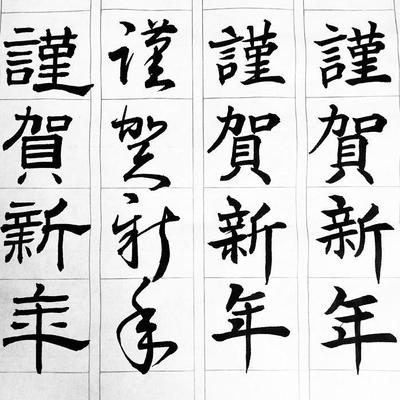 謹賀新年
謹賀新年
謹賀新年
謹賀新年